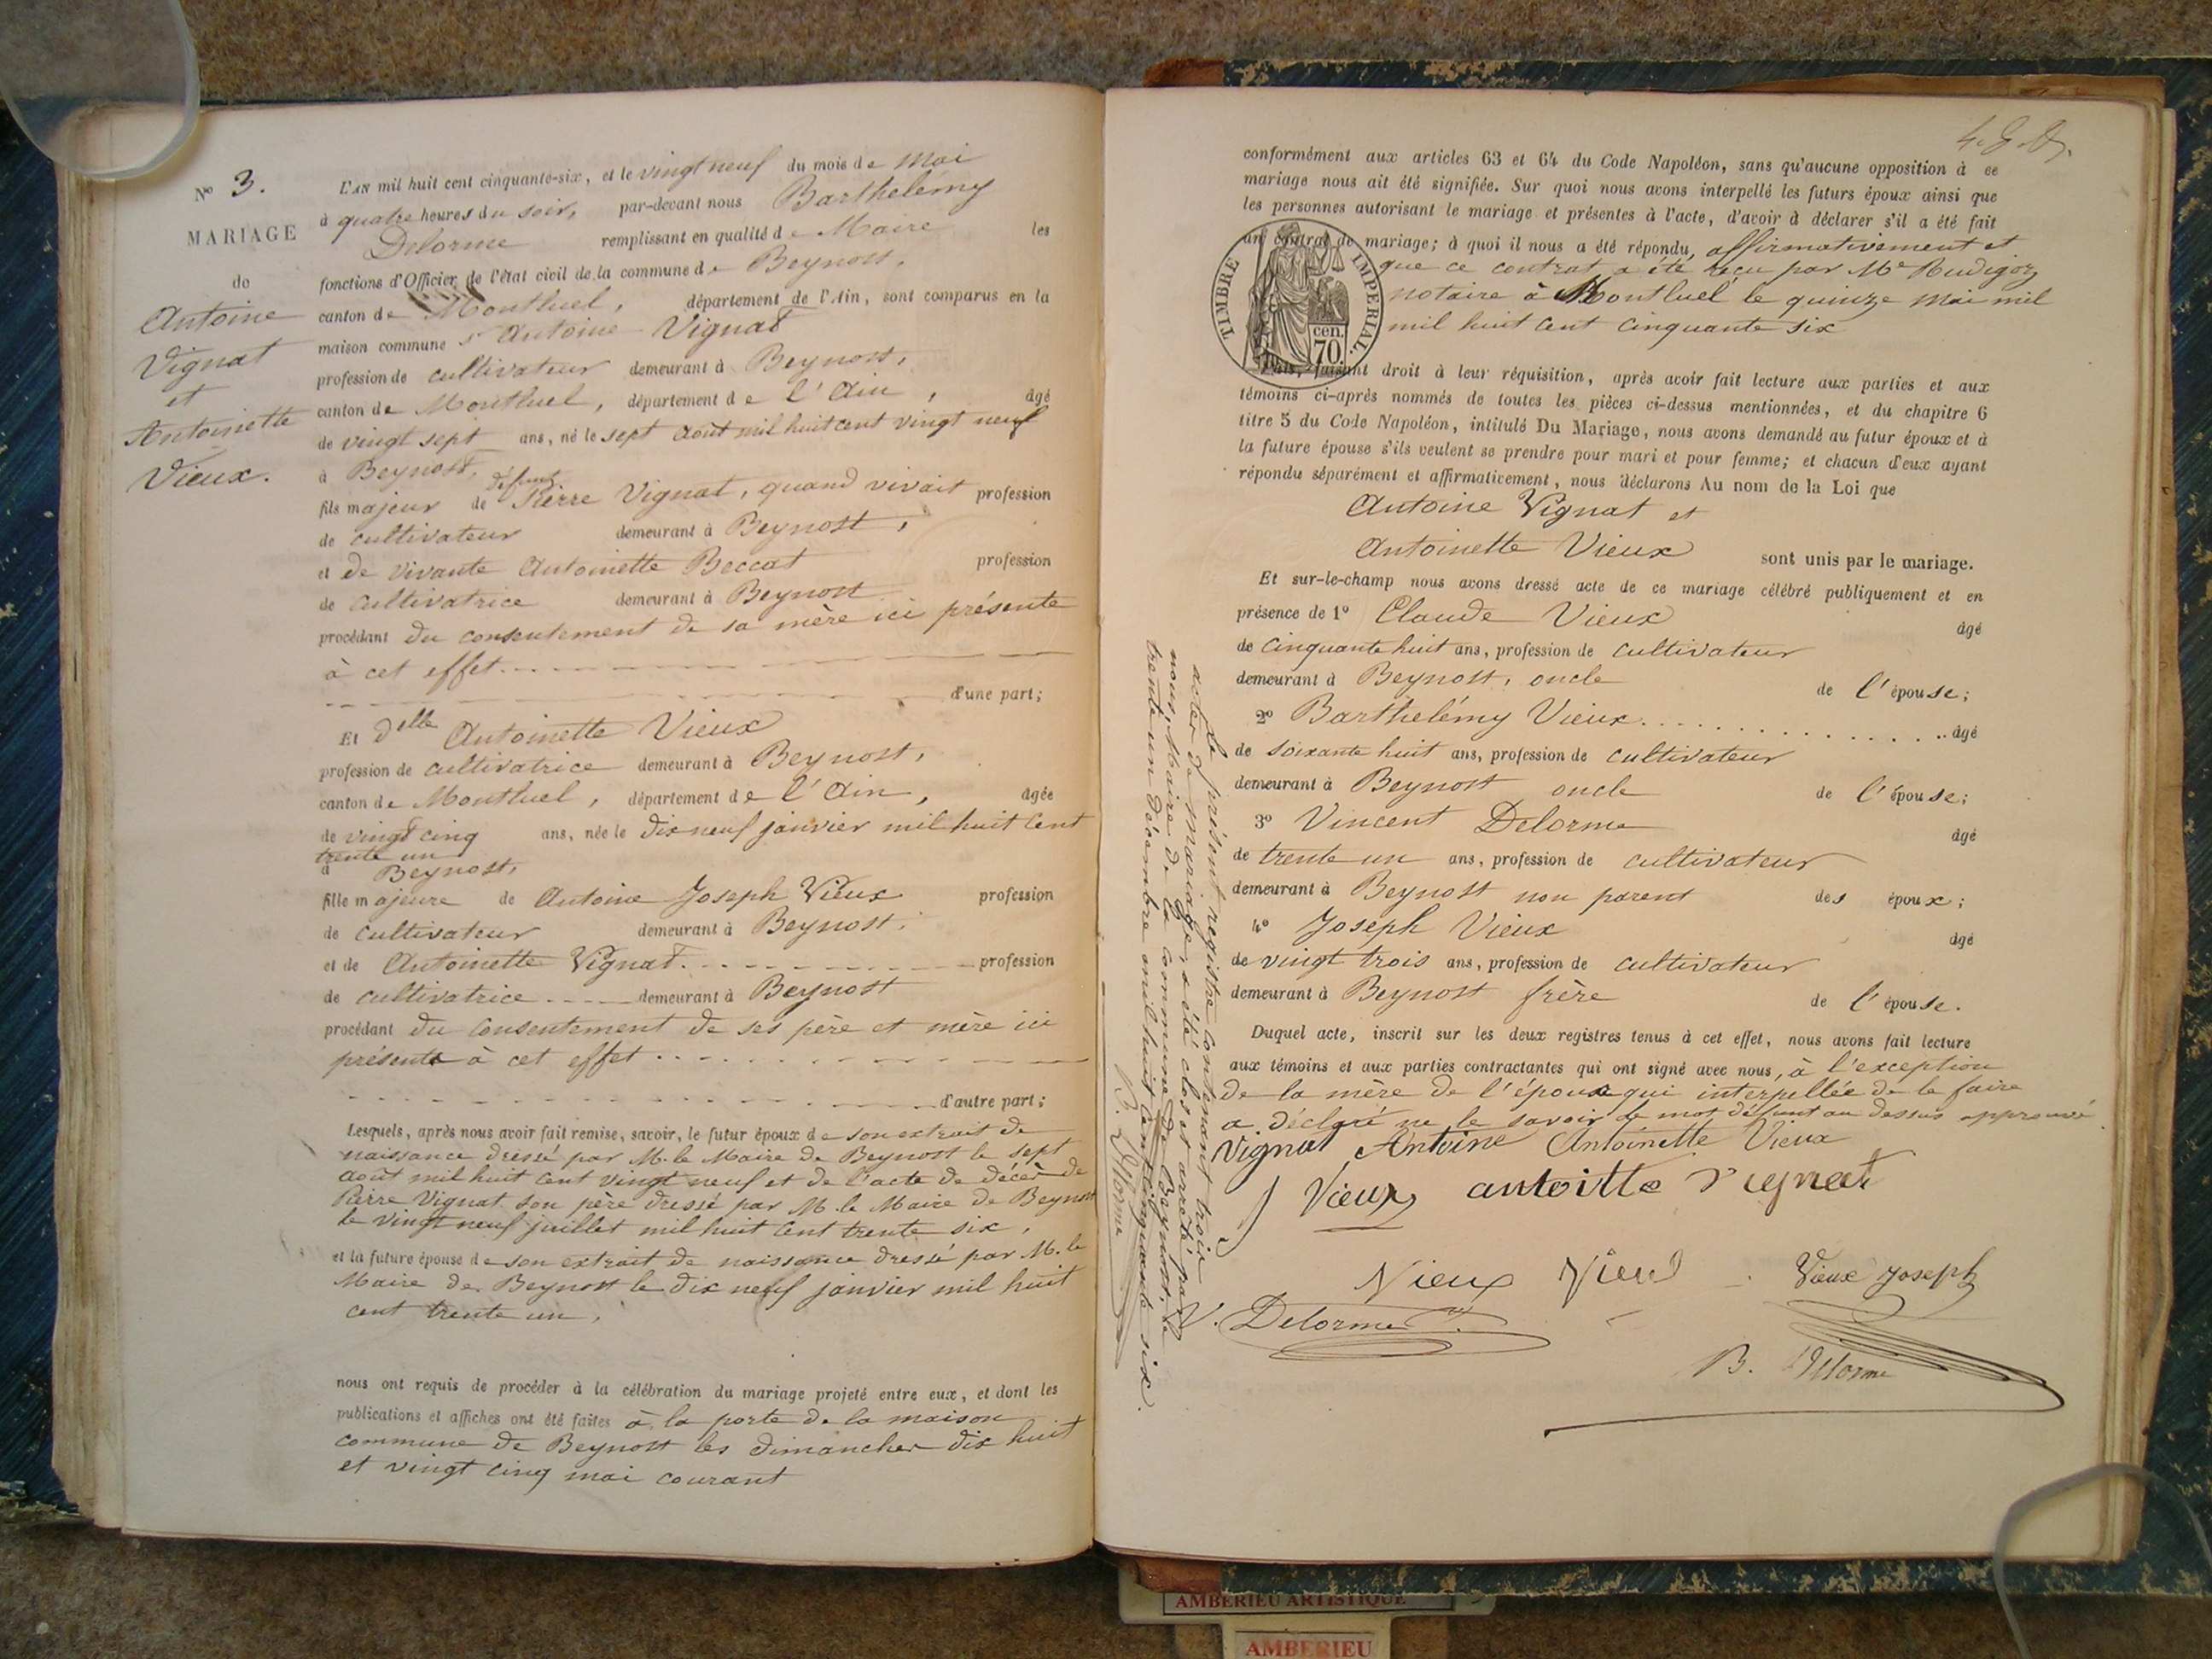 N° 3.
MARIAGE
de
Antoine
Vignat
et
Antoinette
Vieux.
L'AN mil huit cent cinquante-six, et le vingt neuf du mois de Mai
à quatre heures du soir, par-devant nous Barthelémy
Delorme remplissant en qualité de Maire les
fonctions d'Officier de l'état civil de la commune de Beynost,
canton de Montluel, département de l'Ain, sont comparus en la
maison commune Sr Antoine Vignat
profession de cultivateur demeurant à Beynost,
canton de Montluel, département de l'Ain, âgé
de vingt sept ans, né le sept août mil huit cent vingt neuf
à Beynost.
fils majeur de défunt Pierre Vignat, quand vivait profession
de cultivateur demeurant à Beynost,
et de vivante Antoinette Beccat profession
de cultivatrice demeurant à Beynost
procédant du consentement de sa mère ici présente
à cet effet
d'une part;
Et Delle Antoinette Vieux
profession de cultivatrice demeurant à Beynost,
canton de Montluel, département de l'Ain, âgée
de vingt cinq ans, née le dix neuf janvier mil huit cent
trente un
à Beynost,
fille majeure de Antoine Joseph Vieux profession
de cultivateur demeurant à Beynost.
et de Antoinette Vignat. profession
de cultivatrice demeurant à Beynost
procédant du consentement de ses père et mère ici
présents à cet effet
d'autre part;
Lesquels, après nous avoir fait remise, savoir, le futur époux de son extrait de
naissance dressé par M. le Maire de Beynost le sept
août mil huit cent vingt neuf et de l'acte de décès de
Pierre Vignat son père dressé par M. le Maire de Beynost
le vingt neuf juillet mil huit cent trente six,
et la future épouse de son extrait de naissance dressé par M. le
Maire de Beynost le dix neuf janvier mil huit
cent trente un,
nous ont requis de procéder à la célébration du mariage projeté entre eux, et dont les
publications et affiches ont été faites à la porte de la maison
commune de Beynost les dimanches dix huit
et vingt cinq mai courant
conformément aux articles 63 et 64 du Code Napoléon, sans qu'aucune opposition à ce
mariage nous ait été signifiée. Sur quoi nous avons interpellé les futurs époux ainsi que
les personnes autorisant le mariage et présentes à l'acte, d'avoir à déclarer s'il a été fait
un contrat de mariage; à quoi il nous a été répondu, affirmativement et
que ce contrat a été reçu par Me Rudigoz
notaire à Montluel le quinze mai mil
mil huit cent cinquante six
TIMBRE IMPERIAL.
70 cen.
Puis, faisant droit à leur réquisition, après avoir fait lecture aux parties et aux
témoins ci-après nommés de toutes les pièces ci-dessus mentionnées, et du chapitre 6
titre 5 du Code Napoléon, intitulé Du Mariage, nous avons demandé au futur époux et à
la future épouse s'ils veulent se prendre pour mari et pour femme; et chacun d'eux ayant
répondu séparément et affirmativement, nous déclarons Au nom de la Loi que
Antoine Vignat et
Antoinette Vieux sont unis par le mariage.
Et sur-le-champ nous avons dressé acte de ce mariage célébré publiquement et en
présence de 1° Claude Vieux âgé
de cinquante huit ans, profession de cultivateur
demeurant à Beynost, oncle de l'épouse;
2° Barthélémy Vieux. âgé
de soixante huit ans, profession de cultivateur
demeurant à Beynost oncle de l'épouse;
3° Vincent Delorme âgé
de trente un ans, profession de cultivateur
demeurant à Beynost non parent des époux;
4° Joseph Vieux âgé
de vingt trois ans, profession de cultivateur
demeurant à Beynost frère de l'épouse.
Duquel acte, inscrit sur les deux registres tenus à cet effet, nous avons fait lecture
aux témoins et aux parties contractantes qui ont signé avec nous, à l'exception
de la mère de l'épouse qui interpellée de le faire
a déclaré ne le savoir le mot défunt au dessus approuvé
Vignat Antoine Antoinette Vieux
J Vieux antoitte vignat
Vieux Vieux Vieux Joseph
V. Delorme
B. Delorme
Le présent registre contenant trois
actes de mariage, a été clos et arrêté par
nous, Maire de la commune de Beynost, le
trente un décembre mil huit cent cinquante six.
B. Delorme
AMBERIEU ARTISTIQUE
AMBERIEU